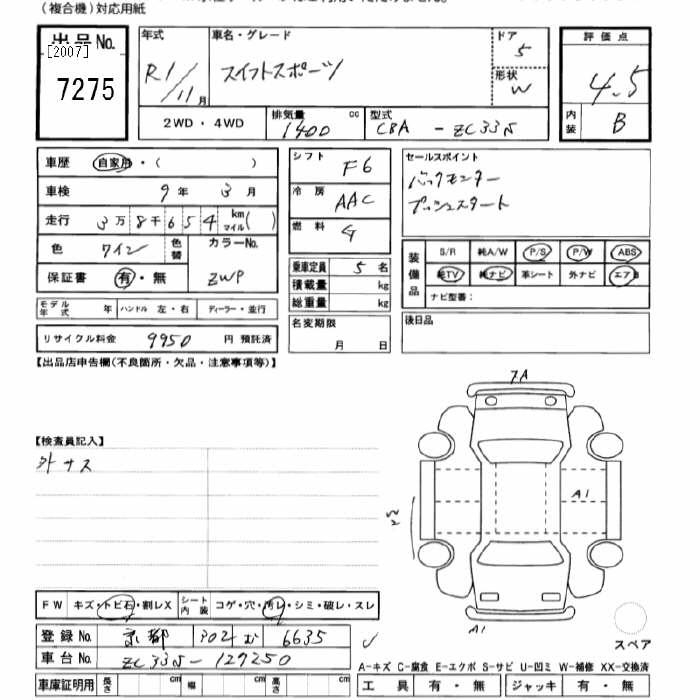 (複合機)対応用紙
出品No.
[2007]
7275
年式 車名・グレード ドア
R1/11月 スイフトスポーツ 5
形状 W
2WD・4WD 排気量 1400 cc 型式 CBA - ZC33S
評価点
4.5
内装 B
車歴 自家用・( )
車検 9年 3月
走行 3万8千654 km マイル( )
色 ワイン 色替 カラーNo. ZWP
保証書 有・無
モデル年式 年 ハンドル 左・右 ディーラー・並行
リサイクル料金 9950 円 預託済
シフト F6
冷房 AAC
燃料 G
乗車定員 5 名
積載量 kg
総重量 kg
名変期限
月 日
セールスポイント
バックモニター
プッシュスタート
装備品 S/R 純A/W P/S P/W ABS
純TV 純ナビ 革シート 外ナビ エアB
ナビ型番:
後日品
【出品店申告欄(不良箇所・欠品・注意事項等)】
【検査員記入】
外サス
7A
A1
A1
FW キズ・トビ石・割レX シート内装 コゲ・穴・汚レ・シミ・破レ・スレ
登録No. 京都 302 む 6635
車台No. ZC33S-129250
車庫証明用 長さ cm 幅 cm 高さ cm
スペア
A-キズ C-腐食 E-エクボ S-サビ U-凹ミ W-補修 XX-交換済
工具 有・無 ジャッキ 有・無